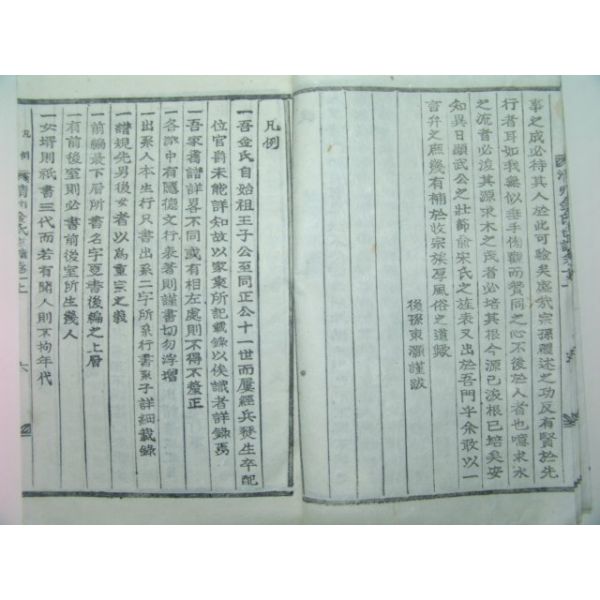 事之成必待其人於此可驗矣處我宗孫禮述之功反有賢於先
行者耳如我無似垂手傍觀而贊同之心不後於人者也噫求水
之流者必浚其源求木之茂者必培其根今源已浚根已培矣安
知異日顯武公之壯節俞宋氏之旌表又出於吾門乎余敢以一
言弁之庶幾有補於收宗族厚風俗之道歟
後孫東灝謹跋
凡例
一吾金氏自始祖王子公至同正公十一世而屢經兵燹生卒配
位官爵未能詳知故以家乘所記載錄以俟識者詳錄焉
一吾家舊譜詳畧不同或有相左處則不得不釐正
一各家中有隱德文行表著則謹書切勿浮增
一出系人本生行只書出系二字所系行書系子詳細載錄
一譜規先男後女者以爲重宗之義
一前編最下層所書名字更書後編之上層
一有前後室則必書前後室所生幾人
一女壻則祇書三代而若有聞人則不拘年代
凡例
金氏
卷首上
六